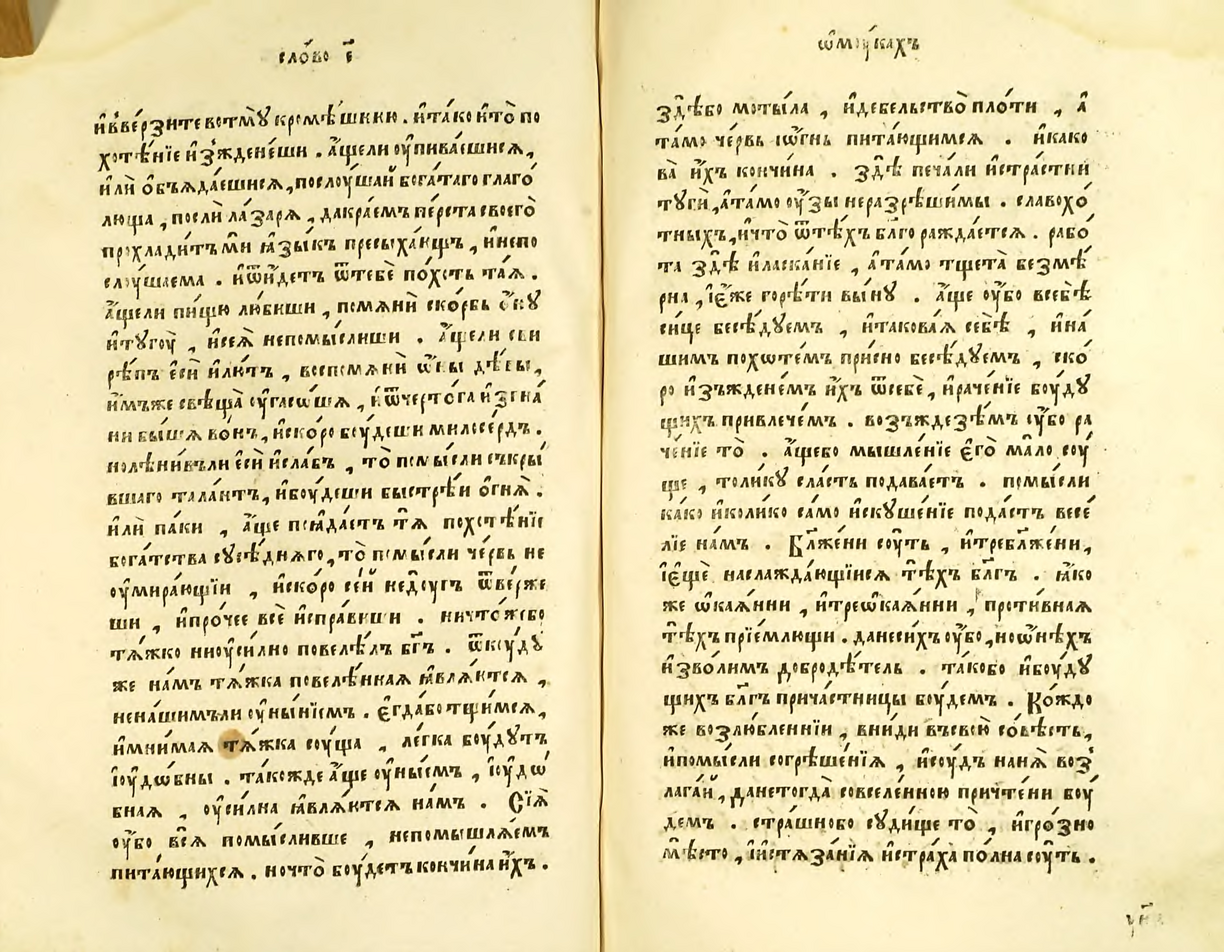 сло́во є҃
и҆вве́рзите вотмꙋ̀ кромѣ́шнюю . и҆та́ко и҆то̀ по
хотѣ́нїе и҆зжⷣене́ши . а҆́щели оу҆пива́ешисѧ ,
и҆лѝ ѻ҆бъѧда́ешисѧ , послоу́шай бога́таго глаго́
люща , послѝ ла́зарѧ , дакра́емъ пе́рста своего̀
прохлади́тъ мѝ ꙗ҆зы́къ пресыха́ющъ , и҆непо
слоу́шаема . и҆ѿи́детъ ѿтебє̀ по́хоть та́ѧ .
а҆́щели пи́щꙋ лю́биши , помѧнѝ ско́рбь ѻ҆́нꙋ
и҆тꙋгоу̀ , и҆сеѧ̀ непомы́слиши . а҆́щели сви
рѣ́пъ єсѝ и҆лю́тъ , воспомѧнѝ ѡ҆́ны дѣ́вы ,
и҆́мъже свѣща̀ оу҆гасо́шѧ , и҆ѿчерто́га и҆згна́
ни бы́шѧ во́нъ , и҆ско́ро боу́деши милосе́рдъ .
нолѣни́въли єсѝ и҆сла́бъ , то̀ помы́сли съкры́
вшаго тала́нтъ , и҆боу́деши быстрѣ́и ѻ҆гнѧ̀ .
и҆лѝ па́ки , а҆́ще поꙗ҆да́етъ тѧ̀ похотѣ́нїе
бога́тства сꙋсѣ́днѧго , то̀ помы́сли че́рвь не
оу҆мира́ющїи , и҆ско́ро се́й недоу́гъ ѿве́рже
ши , и҆про́чее всѐ и҆спра́виши . ничто́жебо
тѧ́жко ниоу҆си́лно повелѣ́лъ бг҃ъ . ѿкоу́дꙋ
же на́мъ тѧ́жка повелѣ́ннаѧ ꙗ҆влѧ́ютсѧ ,
нена́шимъли оу҆ны́нїемъ . є҆гда́бо тщи́мсѧ ,
и҆мни́маѧ тѧ́жка соу́ща , лє́гка боу́дꙋтъ
і҆оу҆дѡ́бны . та́кожде а҆́ще оу҆ны́емъ , і҆оу҆дѡ́
бнаѧ , оу҆си́лна ꙗ҆влѧ́ютсѧ на́мъ . Сїѧ̀
оу҆́бо всѧ̀ помы́сливше , непомышлѧ́емъ
пита́ющихсѧ . ночто̀ боу́детъ кончи́на и҆́хъ .
ѡ҆моу́кахъ
здѣ́бо моты́ла , и҆дебельство̀ пло́ти , а҆
та́мо че́рвь і҆ѻ҆́гнь пита́ющимсѧ . и҆како
ва̀ и҆́хъ кончи́на . здѣ̀ печа́ли и҆стра́стни
тꙋгѝ , а҆та́мо оу҆́зы неразрѣши́мы . славохо́
тныхъ , и҆что̀ ѿтѣ́хъ бл҃го ражда́етсѧ . рабо́
та здѣ̀ и҆ласка́нїе , а҆та́мо тщета̀ безмѣ́
рна , і҆є҆́же горѣ́ти вы́нꙋ . а҆́ще оу҆́бо всебѣ̀
си́це бесѣ́дꙋемъ , и҆такова́ѧ себѣ̀ , и҆на́
шимъ похѡте́мъ при́сно бесѣ́дꙋемъ , ско́
ро и҆зъждене́мъ и҆́хъ ѿсебѐ , и҆раче́нїе боу́дꙋ
щихъ привлече́мъ . возъждезѣ́мъ оу҆́бо ра
че́нїе то̀ . а҆́щебо мышле́нїе є҆гѡ̀ ма́ло соу́
ще , толи́кꙋ сла́сть подава́етъ . помы́сли
ка́ко и҆коли́ко са́мо и҆скꙋше́нїе пода́стъ весе́
лїе на́мъ . Бл҃же́ни соу́ть , и҆требл҃же́ни ,
і҆є҆щѐ наслажда́ющїисѧ тѣ́хъ бл҃гъ . ꙗ҆́ко
же ѡ҆каѧ́нни , и҆треѡ҆каѧ́нни , проти́внаѧ
тѣ́хъ прїе́млющи . данеси́хъ оу҆́бо , ноѡ҆нѣ́хъ
и҆зво́лимъ добродѣ́тель . та́кобо и҆боу́дꙋ
щихъ бл҃гъ прича́стницы боу́демъ . Ко́ждо
же возлю́бленнїи , вни́ди въсвою̀ со́вѣсть ,
и҆помы́сли согрѣше́нїѧ , и҆соу́дъ нанѧ̀ воз
лага́й , данетогда̀ совселе́нною причте́ни боу́
демъ . стра́шнобо сꙋ́дище то̀ , и҆гро́зно
мѣ́сто , і҆и҆стѧза́нїѧ и҆стра́ха по́лна соу́ть .